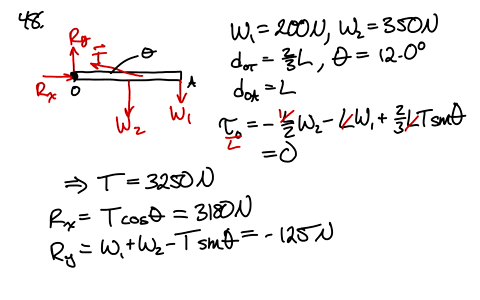 48.
R_y
T
θ
R_x
O
A
W_2
W_1
W_1 = 200N, W_2 = 350N
d_OT = 2/3 L, θ = 12.0°
d_OA = L
τ_0/L = -L/2 W_2 - L W_1 + 2/3 L T sinθ
= 0
⇒ T = 3250 N
R_x = T cosθ = 3180 N
R_y = W_1 + W_2 - T sinθ = -125 N